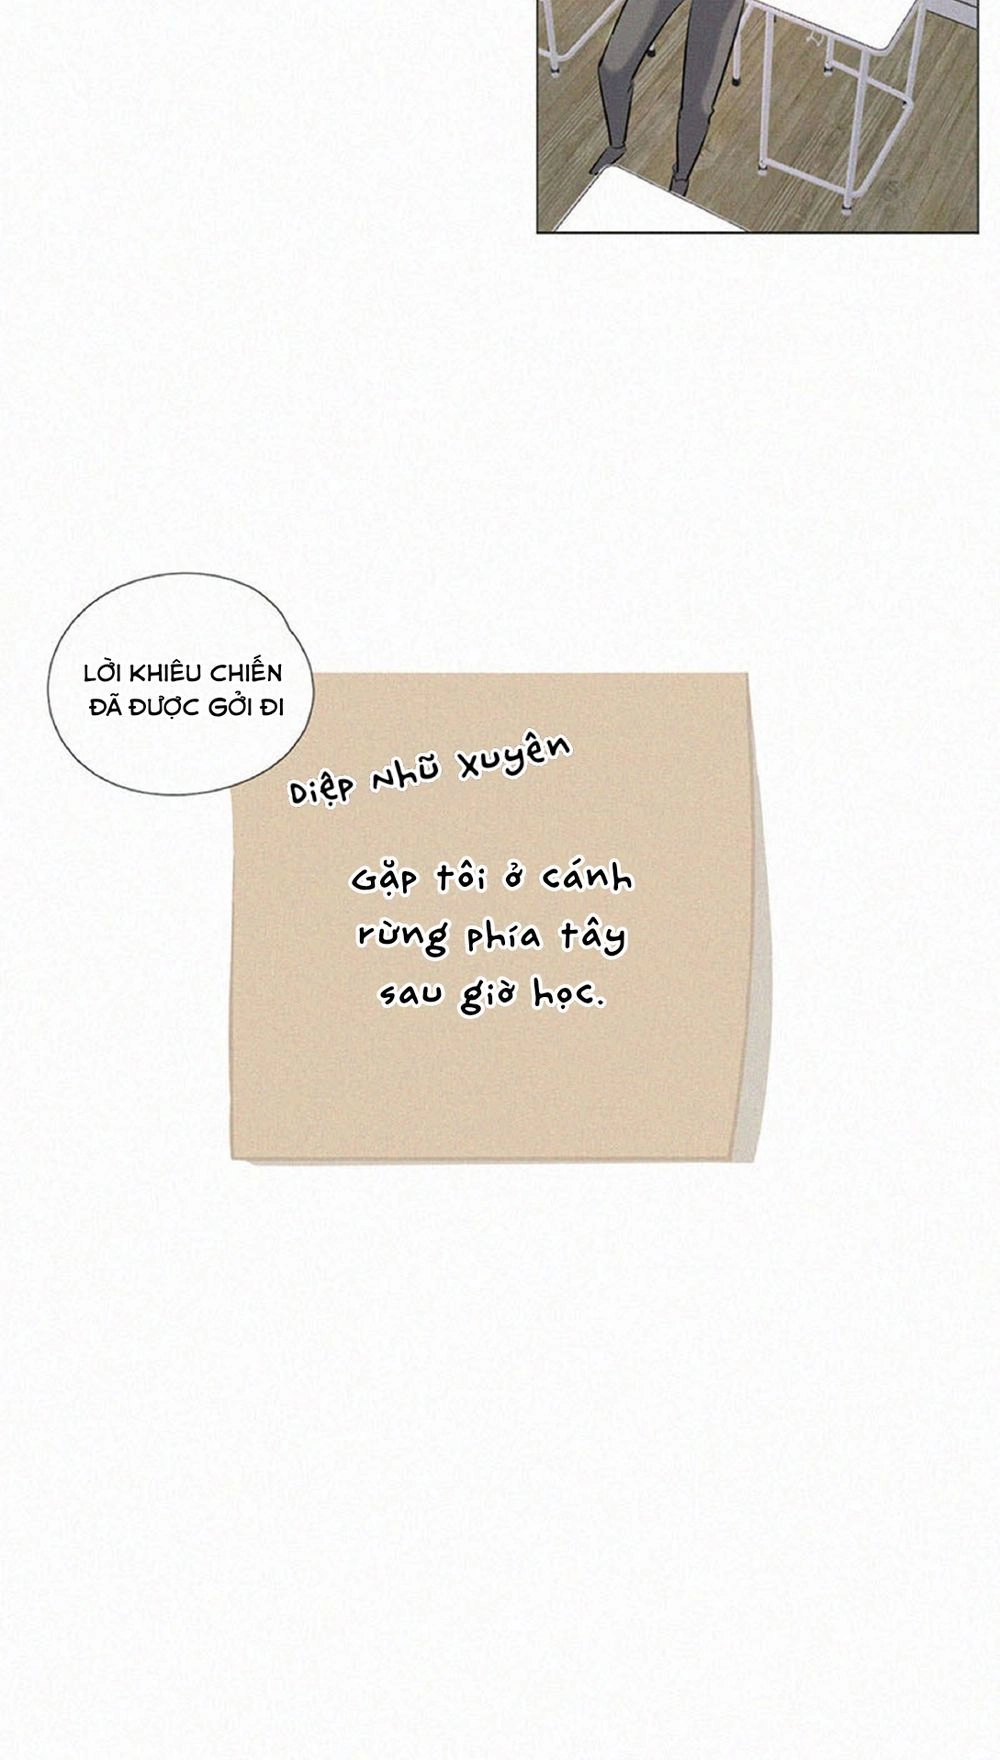 LỜI KHIÊU CHIẾN
ĐÃ ĐƯỢC GỞI ĐI
Diệp Nhũ Xuyên
Gặp tôi ở cánh
rừng phía tây
sau giờ học.